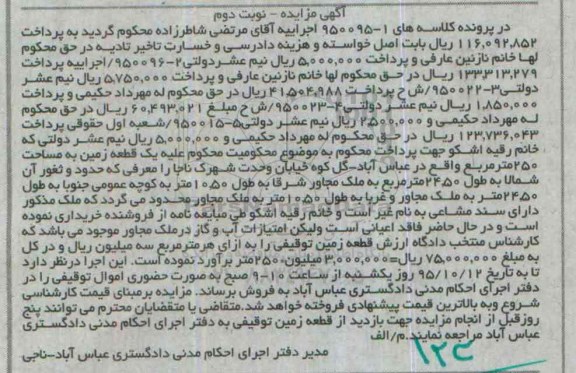 آگهی مزایده - نوبت دوم
در پرونده کلاسه های 1-950095 اجراییه آقای مرتضی شاطرزاده محکوم گردید به پرداخت
116,092,852 ریال بابت اصل خواسته و هزینه دادرسی و خسارت تاخیر تادیه در حق محکوم
لها خانم نازنین عارفی و پرداخت 5,000,000 ریال نیم عشر دولتی 2-950096/اجراییه پرداخت
133,313,279 ریال در حق محکوم لها خانم نازنین عارفی و پرداخت 5,750,000 ریال نیم عشر
دولتی 3-950022/ش ح پرداخت 41,504,988 ریال در حق محکوم له مهرداد حکیمی و پرداخت
1,850,000 ریال نیم عشر دولتی 4-950023/ش ح مبلغ 60,493,021 ریال در حق محکوم
له مهرداد حکیمی و 2,500,000 ریال نیم عشر دولتی 5-950015/شعبه اول حقوقی پرداخت
123,736,043 ریال در حق محکوم له مهرداد حکیمی و 5,000,000 ریال نیم عشر دولتی که
خانم رقیه اشکو جهت پرداخت محکوم به موضوع محکومیت محکوم علیه یک قطعه زمین به مساحت
250مترمربع واقع در عباس آباد-گل کوه خیابان وحدت شهرک ناجا را معرفی که حدود و ثغور آن
شمالا به طول 2450مترمربع به ملک مجاور شرقا به طول 1050متر به کوچه عمومی جنوبا به طول
2450متر به ملک مجاور و غربا به طول 1050متر به ملک مجاور محدود می گردد که ملک مذکور
دارای سند مشاعی به نام غیر است و خانم رقیه اشکو طی مبایعه نامه از فروشنده خریداری نموده
است و در حال حاضر فاقد اعیانی است ولیکن امتیازات آب و گاز درملک مجاور موجود می باشد که
کارشناس منتخب دادگاه ارزش قطعه زمین توقیفی را به ازای هرمترمربع سه میلیون ریال و در کل
به مبلغ 75,000,000 ریال=3,000,000میلیون*250متر برآورد نموده است. این اجرا درنظر دارد
تا به تاریخ 95/10/12 روز یکشنبه از ساعت 10-9 صبح به صورت حضوری اموال توقیفی را در
دفتر اجرای احکام مدنی دادگستری عباس آباد به فروش برساند. مزایده برمبنای قیمت کارشناسی
شروع وبه بالاترین قیمت پیشنهادی فروخته خواهد شد.متقاضی یا متقضایان محترم می توانند پنج
روزقبل از انجام مزایده جهت بازدید از قطعه زمین توقیفی به دفتر اجرای احکام مدنی دادگستری
عباس آباد مراجعه نمایند.م/الف
مدیر دفتر اجرای احکام مدنی دادگستری عباس آباد-ناجی